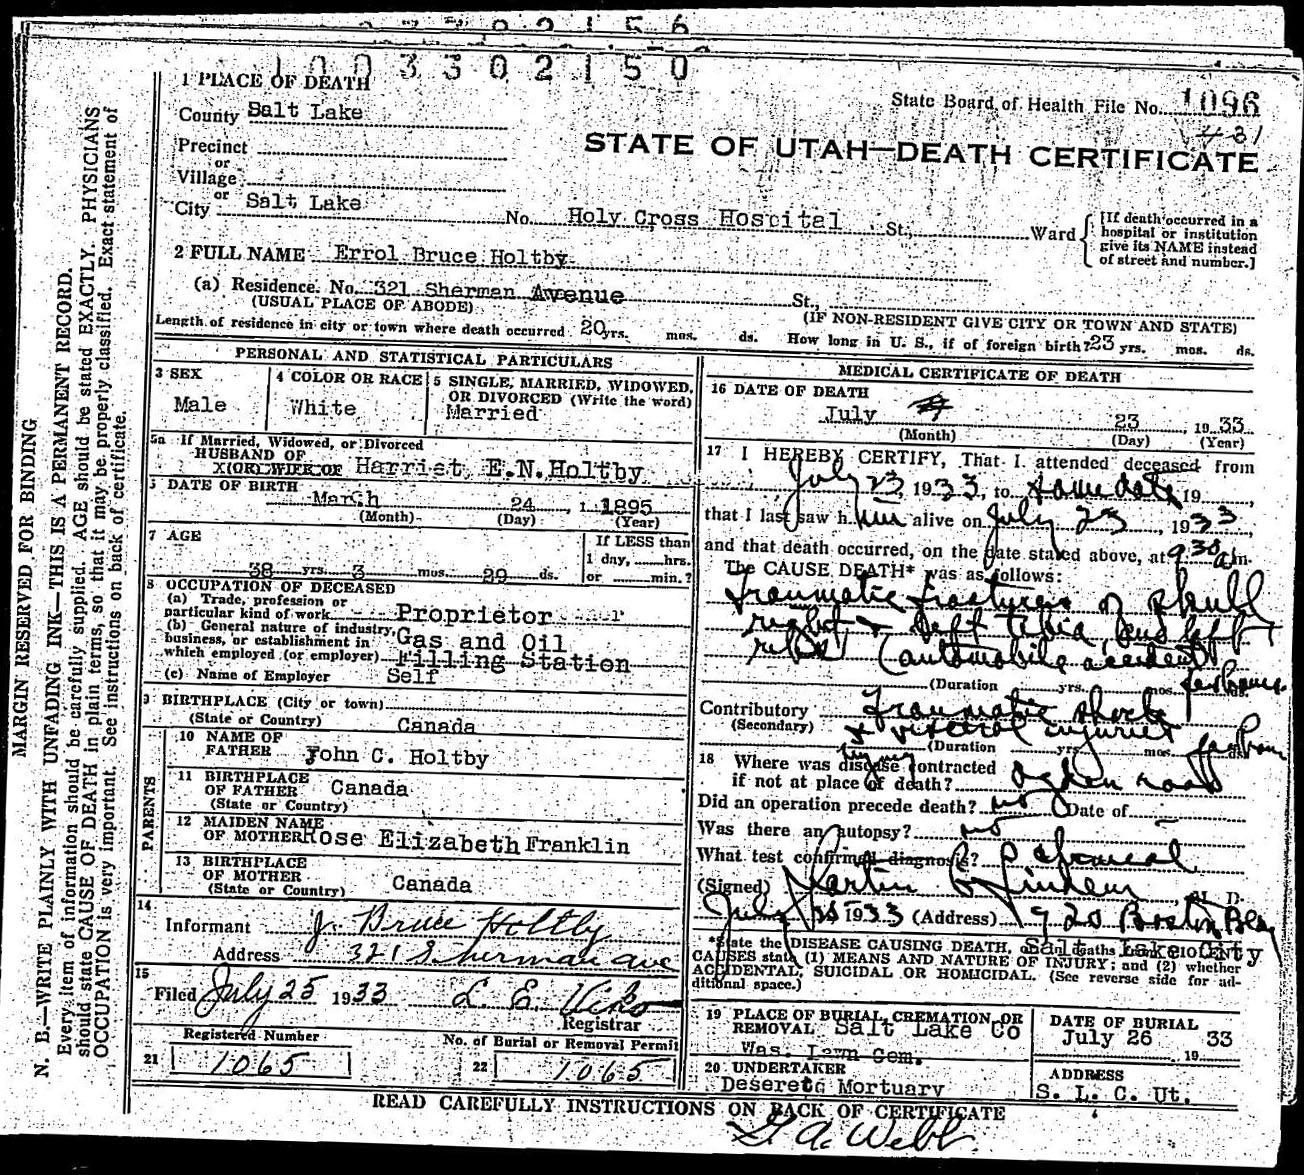 1 0 0 3 3 0 2 1 5 0
1 PLACE OF DEATH
State Board of Health File No. 1096
County Salt Lake
431
STATE OF UTAH—DEATH CERTIFICATE
Precinct
or
Village
or
City Salt Lake No. Holy Cross Hospital St., Ward
[If death occurred in a hospital or institution give its NAME instead of street and number.]
2 FULL NAME Errol Bruce Holtby
(a) Residence. No. 321 Sherman Avenue St.,
(USUAL PLACE OF ABODE) (IF NON-RESIDENT GIVE CITY OR TOWN AND STATE)
Length of residence in city or town where death occurred 20 yrs. mos. ds. How long in U. S., if of foreign birth? 23 yrs. mos. ds.
PERSONAL AND STATISTICAL PARTICULARS
3 SEX
Male
4 COLOR OR RACE
White
5 SINGLE, MARRIED, WIDOWED,
OR DIVORCED (Write the word)
Married
5a If Married, Widowed, or Divorced
HUSBAND OF
(OR) WIFE OF Harriet E.N.Holtby
DATE OF BIRTH
March 24, 1895
(Month) (Day) (Year)
7 AGE
If LESS than
1 day, hrs.
38 yrs. 3 mos. 29 ds. or min.?
8 OCCUPATION OF DECEASED
(a) Trade, profession or
particular kind of work Proprietor
(b) General nature of industry,
business, or establishment in Gas and Oil
which employed (or employer) Filling Station
(c) Name of Employer Self
9 BIRTHPLACE (City or town)
(State or Country) Canada
PARENTS
10 NAME OF
FATHER John C. Holtby
11 BIRTHPLACE
OF FATHER Canada
(State or Country)
12 MAIDEN NAME
OF MOTHER Rose Elizabeth Franklin
13 BIRTHPLACE
OF MOTHER
(State or Country) Canada
14
Informant J. Bruce Holtby
Address 321 Sherman ave
15
Filed July 25 1933 L. E. Viko
Registrar
Registered Number
21 1065
No. of Burial or Removal Permit
22 1065
MEDICAL CERTIFICATE OF DEATH
16 DATE OF DEATH
July 23, 1933
(Month) (Day) (Year)
17 I HEREBY CERTIFY, That I attended deceased from
July 23, 1933, to same date, 19
that I last saw him alive on July 23, 1933
and that death occurred, on the date stated above, at 9 30 am.
The CAUSE DEATH* was as follows:
Traumatic fractures of skull
right & left tibia and left
(automobile accident)
(Duration yrs. mos. few hours
Contributory Traumatic shock
(Secondary) & visceral injuries
(Duration yrs. mos. ds.
18 Where was disease contracted
injury
if not at place of death? Ogden road
Did an operation precede death? no Date of
Was there an autopsy? no
What test confirmed diagnosis?
(Signed) Martin C. Lindem, M. D.
July 1933 (Address) 920 Boston Bldg
Salt Lake City
*State the DISEASE CAUSING DEATH, or in deaths from VIOLENT
CAUSES state (1) MEANS AND NATURE OF INJURY; and (2) whether
ACCIDENTAL, SUICIDAL OR HOMICIDAL. (See reverse side for ad-
ditional space.)
19 PLACE OF BURIAL, CREMATION, OR
REMOVAL Salt Lake Co
Was. Lawn Cem.
DATE OF BURIAL
July 26 1933
20 UNDERTAKER
Deseret Mortuary
ADDRESS
S. L. C. Ut.
READ CAREFULLY INSTRUCTIONS ON BACK OF CERTIFICATE
G A Webb
MARGIN RESERVED FOR BINDING
N. B.—WRITE PLAINLY WITH UNFADING INK—THIS IS A PERMANENT RECORD.
Every item of information should be carefully supplied. AGE should be stated EXACTLY. PHYSICIANS
should state CAUSE OF DEATH in plain terms, so that it may be properly classified. Exact statement of
OCCUPATION is very important. See instructions on back of certificate.